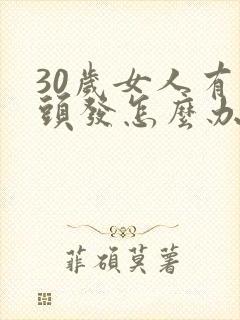 30歲女人有
頭發怎麼办
菲碩莫薯